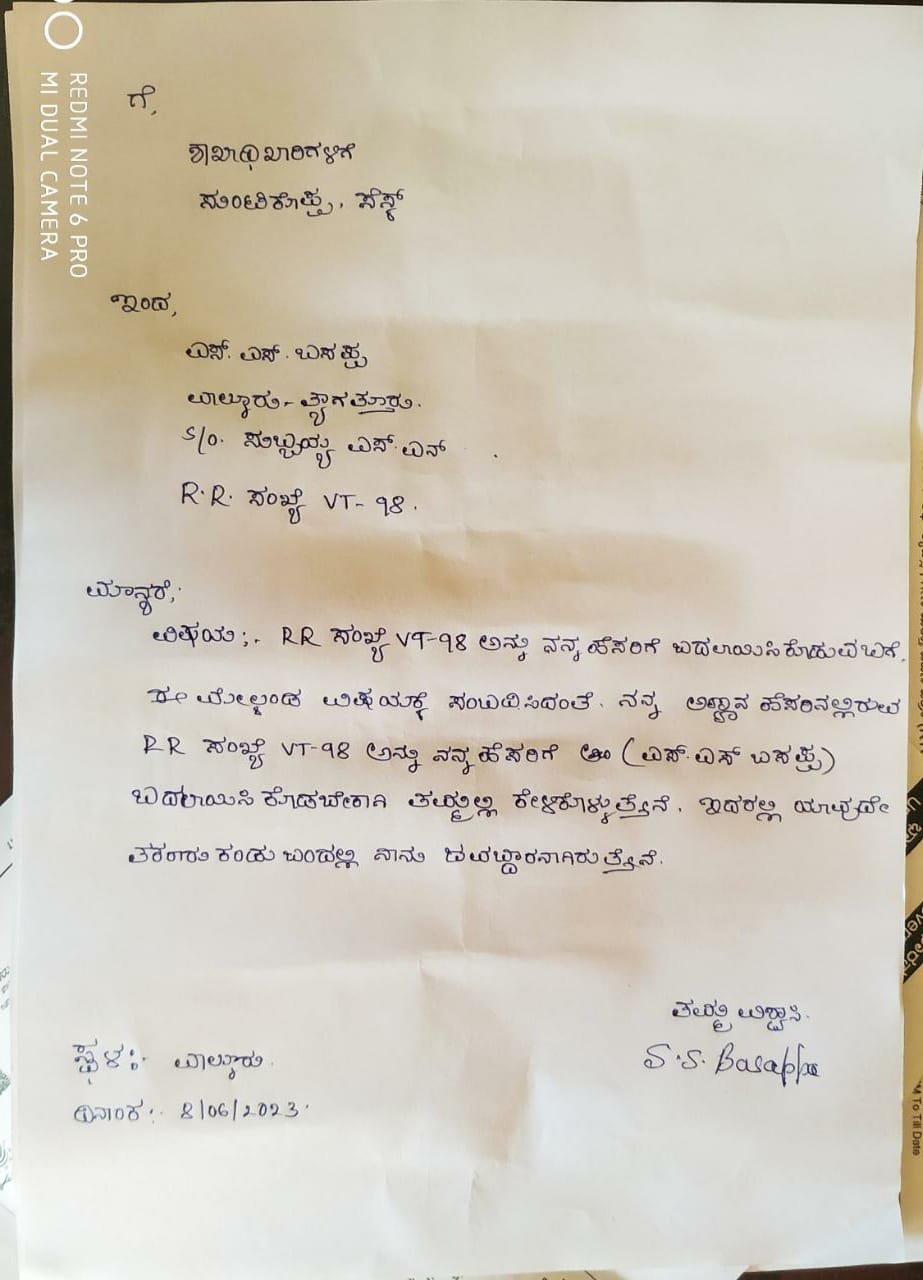 ಗೆ,
ಶಾಖಾಧಿಖಾರಿಗಳಿಗೆ
ಸುಂಟಿಕೊಪ್ಪ, ಸೆಸ್ಕ್
ಇಂದ,
ಎಸ್. ಎಸ್. ಬಸಪ್ಪ
ವಾಲ್ನೂರು - ತ್ಯಾಗತ್ತೂರು.
S/o. ಸುಬ್ಬಯ್ಯ ಎಸ್. ಎನ್
R.R. ಸಂಖ್ಯೆ VT- 98.
ಮಾನ್ಯರೆ,
ವಿಷಯ:. RR ಸಂಖ್ಯೆ VT-98 ಅನ್ನು ನನ್ನ ಹೆಸರಿಗೆ ಬದಲಾಯಿಸಿಕೊಡುವ ಬಗೆ.
ಈ ಮೇಲ್ಕಂಡ ವಿಷಯಕ್ಕೆ ಸಂಬಂಧಿಸಿದಂತೆ. ನನ್ನ ಅಣ್ಣಾನ ಹೆಸರಿನಲ್ಲಿರುವ
RR ಸಂಖ್ಯೆ VT-98 ಅನ್ನು ನನ್ನ ಹೆಸರಿಗೆ (ಎಸ್. ಎಸ್ ಬಸಪ್ಪ)
ಬದಲಾಯಿಸಿ ಕೊಡಬೇಕಾಗಿ ತಮ್ಮಲ್ಲಿ ಕೇಳಿಕೊಳ್ಳುತ್ತೇನೆ. ಇದರಲ್ಲಿ ಯಾವುದೇ
ತಕರಾರು ಕಂಡು ಬಂದಲ್ಲಿ ನಾನು ಜವಬ್ದಾರನಾಗಿರುತ್ತೇನೆ.
ತಮ್ಮ ವಿಶ್ವಾಸಿ.
S.S. Basappa
ಸ್ಥಳ:. ವಾಲ್ನೂರು.
ದಿನಾಂಕ:. 8/06/2023.
REDMI NOTE 6 PRO
MI DUAL CAMERA
M To Till Date